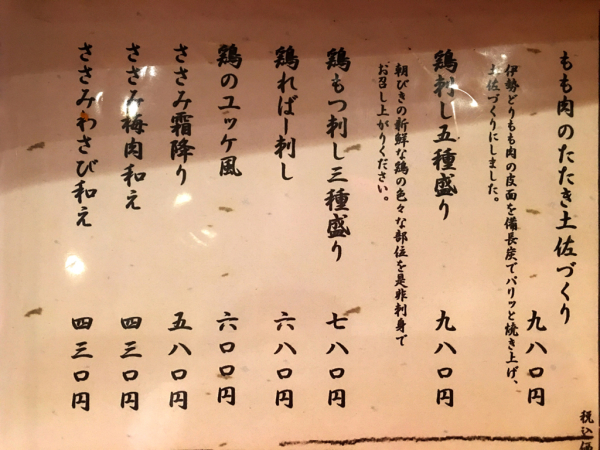 もも肉のたたき土佐づくり
九八〇円
伊勢どりもも肉の皮面を備長炭でパリッと焼き上げ、
土佐づくりにしました。
鶏刺し五種盛り
九八〇円
朝びきの新鮮な鶏の色々な部位を是非刺身で
お召し上がりください。
鶏もつ刺し三種盛り
七八〇円
鶏ればー刺し
六八〇円
鶏のユッケ風
六〇〇円
ささみ霜降り
五八〇円
ささみ梅肉和え
四三〇円
ささみわさび和え
四三〇円
税込価